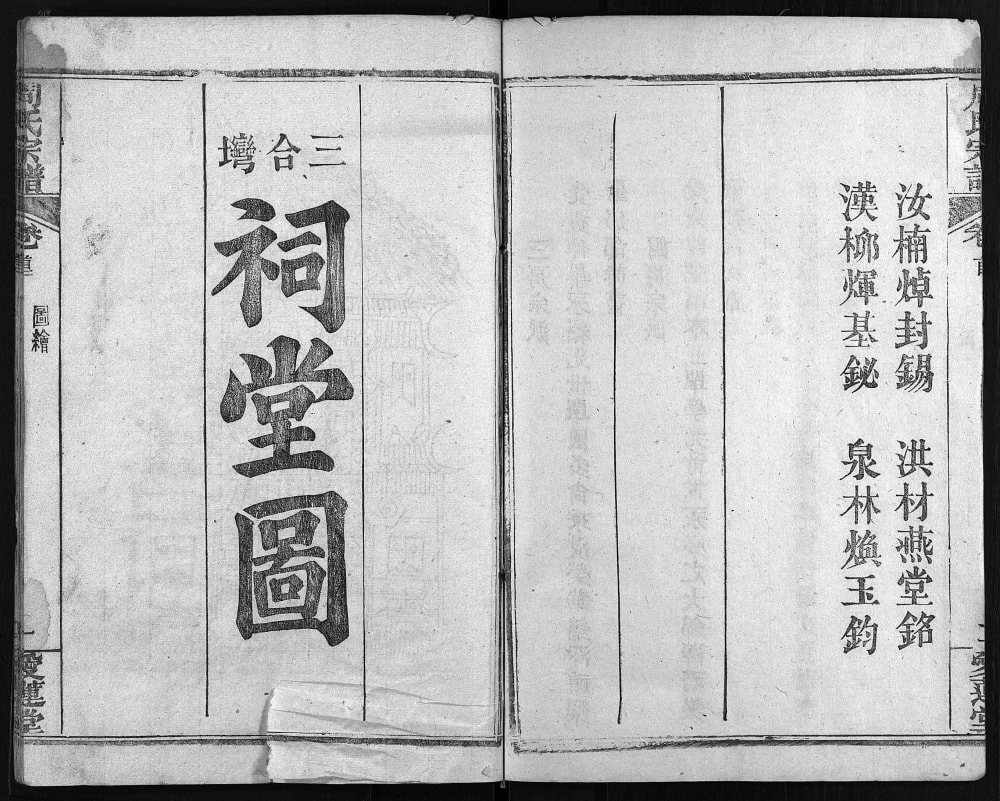 周氏宗譜
卷首
汝楠焯封錫　洪材燕堂銘
漢栁煇基鉍　泉林煥玉鈞
愛蓮堂
三合灣
祠堂圖
周氏宗譜
卷首
圖繪
愛蓮堂